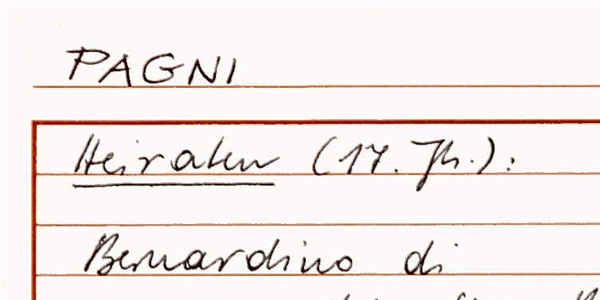 PAGNI
Heiraten (17. Jh.):
Bernardino di